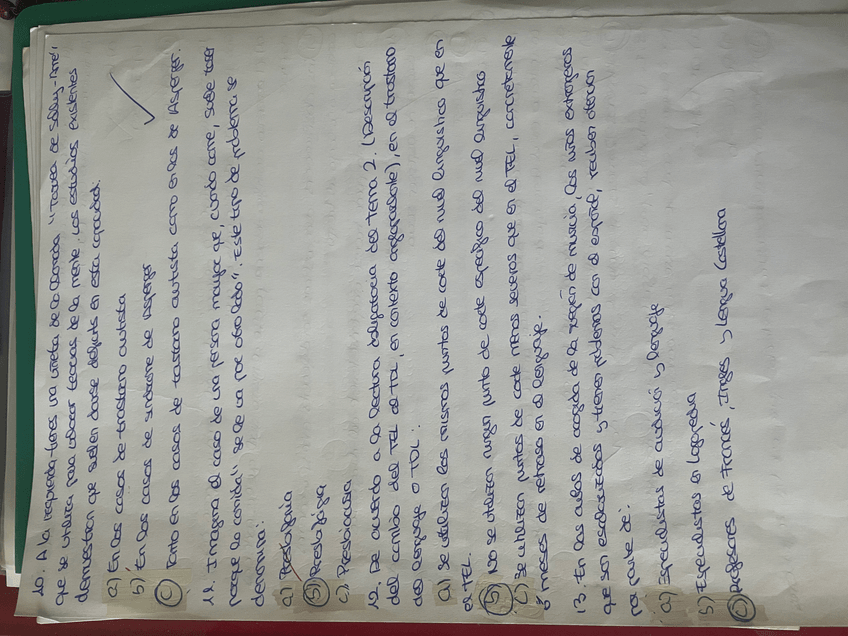 10. A la izquierda tienes una viñeta de la llamada "Tarea de Sally-Anne",
que se utiliza para valorar teorías de la mente. Los estudios existentes
demuestran que suelen darse déficits en esta capacidad.
a) En los casos de trastorno autista
b) En los casos de síndrome de Asperger
c) Tanto en los casos de trastorno autista como en los de Asperger.
11. Imagina el caso de una persona mayor que, cuando come, suele toser
porque la comida "se le va por otro lado". Este tipo de problema se
denomina:
a) Presbifagia
b) Presbifagia
c) Presbiacusia
12. De acuerdo a la lectura obligatoria del tema 2. (Descripción
del cambio del TEL al TDL, en contexto angloparlante), en el trastorno
del lenguaje o TDL:
a) Se utilizan los mismos puntos de corte del nivel lingüístico que en
el TEL.
b) No se utilizan ningún punto de corte específico del nivel lingüístico
c) Se utilizan puntos de corte menos severos que en el TEL, concretamente
3 meses de retraso en el lenguaje.
13. En las aulas de acogida de la región de Murcia, los niños extranjeros
que son escolarizados y tienen problemas con el español, reciben atención
por parte de:
a) Especialistas de audición y lenguaje
b) Especialistas en logopedia
c) Profesores de Francés, Inglés y Lengua Castellana